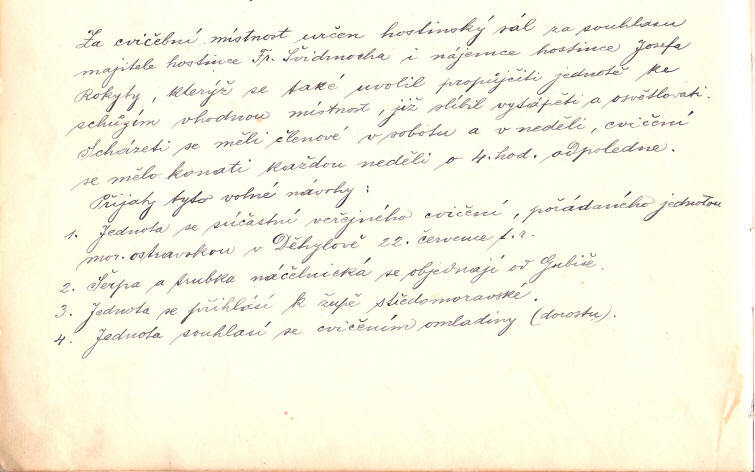 Za cvičební místnost určen hostinský sál za souhlasu
majitele hostince Fr. Švidrnocha i nájemce hostince Josefa
Rokyty, kterýž se také uvolil propůjčiti jednotě ke
schůzím vhodnou místnost, již slíbil vytápěti a osvětlovati.
Scházeti se měli členové v sobotu a v neděli, cvičení
se mělo konati každou neděli o 4. hod. odpoledne.
Přijaty tyto volné návrhy:
1. Jednota se súčastní veřejného cvičení, pořádaného jednotou
mor. ostravskou v Děhylově 22. července t. r.
2. Šerpa a trubka náčelnická se objednají od Gubiše.
3. Jednota se přihlásí k župě středomoravské.
4. Jednota souhlasí se cvičením omladiny (dorostu).